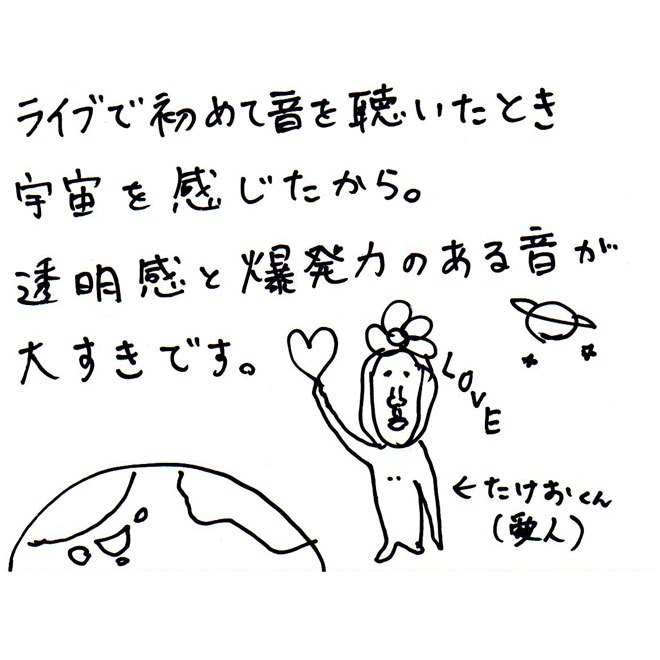 ライブで初めて音を聴いたとき
宇宙を感じたから。
透明感と爆発力のある音が
大すきです。
LOVE
←たけおくん
(愛人)